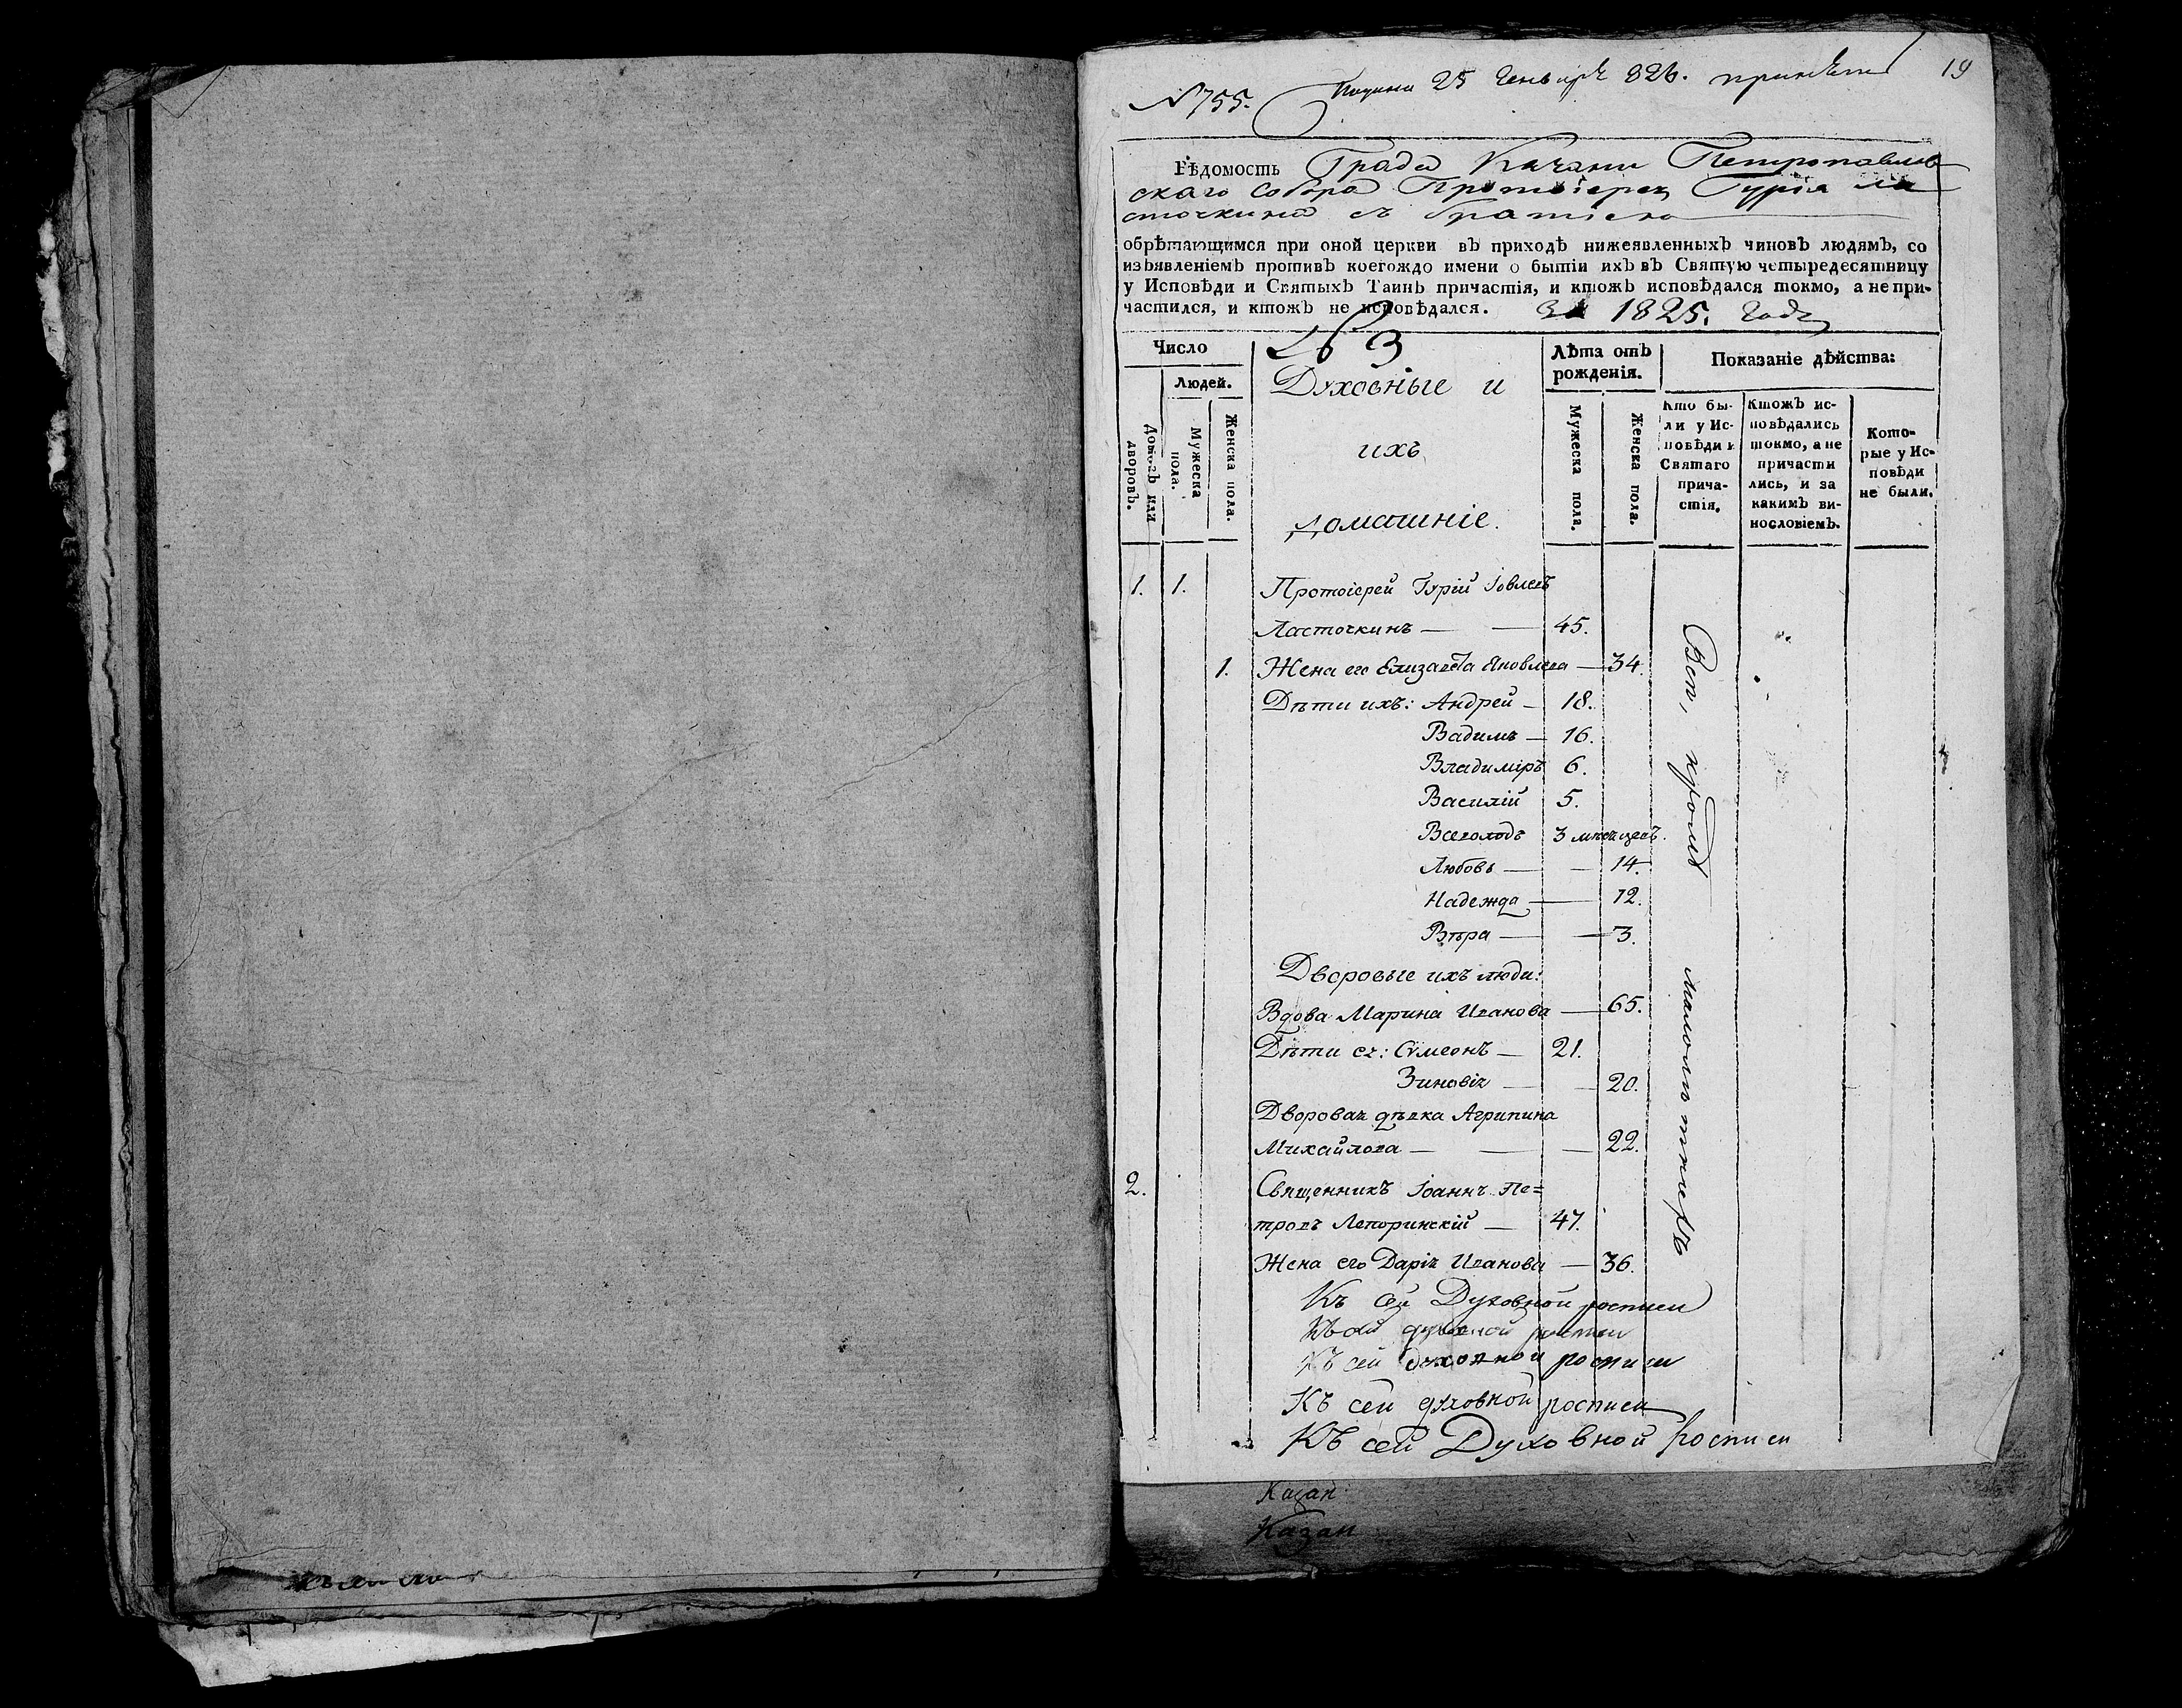 19
№755. 25 Генваря 826.
Вѣдомость Града Казани Петропавлов
скаго Собора Протоіерея Гурія Ла
сточкина съ братіею
обрѣтающимся при оной церкви въ приходѣ нижеявленныхъ чиновъ людямъ, со
изъявленіемъ противъ коегождо имени о бытіи ихъ въ Святую четыредесятницу
у Исповѣди и Святыхъ Таинъ причастія, и ктожъ исповѣдался токмо, а не при-
частился, и ктожъ не исповѣдался. За 1825. Годъ
Число
Людей.
Домовъ или дворовъ.
Мужеска пола.
Женска пола.
Духовніые и
ихъ
домашніе.
Лѣта отъ
рожденія.
Мужеска пола.
Женска пола.
Показаніе дѣйства:
Кто бы-
ли у Ис-
повѣди и
Святаго
прича-
стія.
Ктожъ ис-
повѣдались
токмо, а не
причасти
лись, и за
какимъ ви-
нословіемъ.
Кото-
рые у Ис-
повѣди
не были.
1. 1. Протоіерей Гурій Іовлевъ
Ласточкинъ — — 45.
1. Жена его Елизавета Яковлева — 34.
Дѣти ихъ: Андрей — 18.
Вадимъ — 16.
Владиміръ 6.
Василій 5.
Всеволодъ 3 мѣсяцевъ.
Любовь — — 14.
Надежда — 12.
Вѣра — — 3.
Дворовые ихъ люди:
Вдова Марина Иванова — 65.
Дѣти ея: Сѵмеонъ — 21.
Зиновія — — 20.
Дворовая дѣвка Агрипина
Михайлова — — — 22.
2. Священникъ Іоаннъ Пе=
тровъ Лепоринскій — 47.
Жена его Дарія Иванова — 36.
Всѣ, кромѣ малолѣтнехъ
Къ сей Духовной росписи
Къ сей духовной росписи
Къ сей духовной росписи
Къ сей духовной росписи
Къ сей Духовной росписи
Казан
Казан